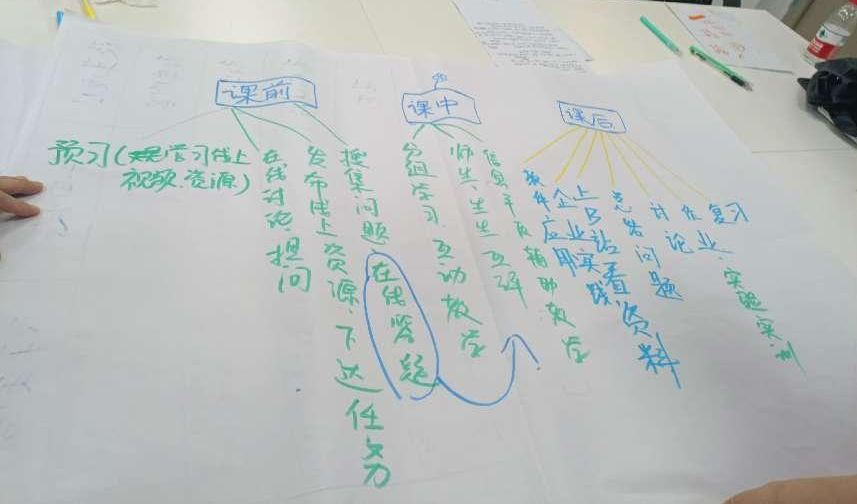 课前
预习(观学习线上
视频.资源)
在线讨论.提问
发布线上资源.下达任务
搜集问题
在线答题
课中
分组学习.互动教学
师生、生生互评
信息平台辅助教学
课后
软件应用
企业实践
上B站看资料
总结问题
讨论
作业
复习
实验实训